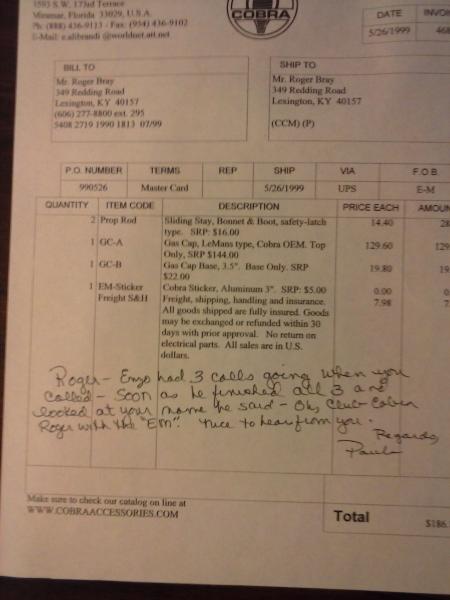 1593 S.W. 173rd Terrace
Miramar, Florida 33029, U.S.A.
Ph: (888) 436-9113 - Fax: (954) 436-9102
E-Mail: e.alibrandi @worldnet.att.net
COBRA
DATE INVOI
5/26/1999 468
BILL TO
Mr. Roger Bray
349 Redding Road
Lexington, KY 40157
(606) 277-8800 ext. 295
5408 2719 1990 1813 07/99
SHIP TO
Mr. Roger Bray
349 Redding Road
Lexington, KY 40157
(CCM) (P)
P.O. NUMBER TERMS REP SHIP VIA F.O.B
990526 Master Card 5/26/1999 UPS E-M
QUANTITY ITEM CODE DESCRIPTION PRICE EACH AMOUN
2 Prop Rod Sliding Stay, Bonnet & Boot, safety-latch 14.40 28
type. SRP: $16.00
1 GC-A Gas Cap, LeMans type, Cobra OEM. Top 129.60 129
Only, SRP $144.00
1 GC-B Gas Cap Base, 3.5". Base Only. SRP 19.80 19
$22.00
1 EM-Sticker Cobra Sticker, Aluminum 3". SRP: $5.00 0.00 0
Freight S&H Freight, shipping, handling and insurance. 7.98 7
All goods shipped are fully insured. Goods
may be exchanged or refunded within 30
days with prior approval. No return on
electrical parts. All sales are in U.S.
dollars.
Roger - Enzo had 3 calls going when you
called - Soon as he finished all 3 and
looked at your name he said - Oh, Club Cobra
Roger with the "EM". Nice to hear from you.
Regards,
Paul
Make sure to check our catalog on line at
WWW.COBRAACCESSORIES.COM
Total $186.